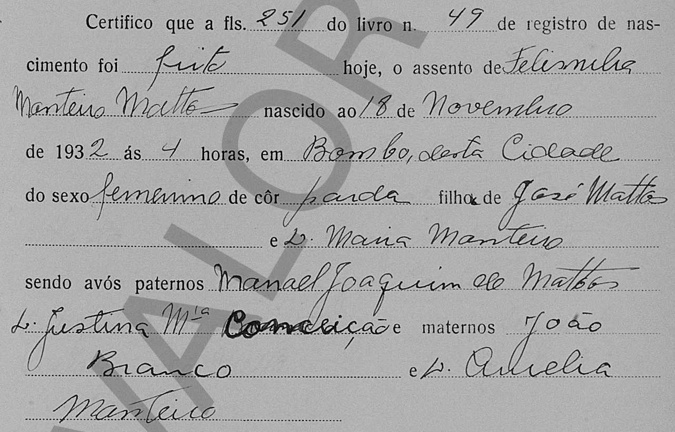 Certifico que a fls. 251 do livro n. 49 de registro de nas-
cimento foi feito hoje, o assento de Felismilia
Monteiro Mattos nascido ao 18 de Novembro
de 1932 ás 4 horas, em Bombo, desta Cidade
do sexo femenino de côr parda filha de José Mattos
e D. Maria Monteiro
sendo avós paternos Manoel Joaquim de Mattos
D. Justina Mia Conceição e maternos João
Branco e D. Amelia
Monteiro
VALOR